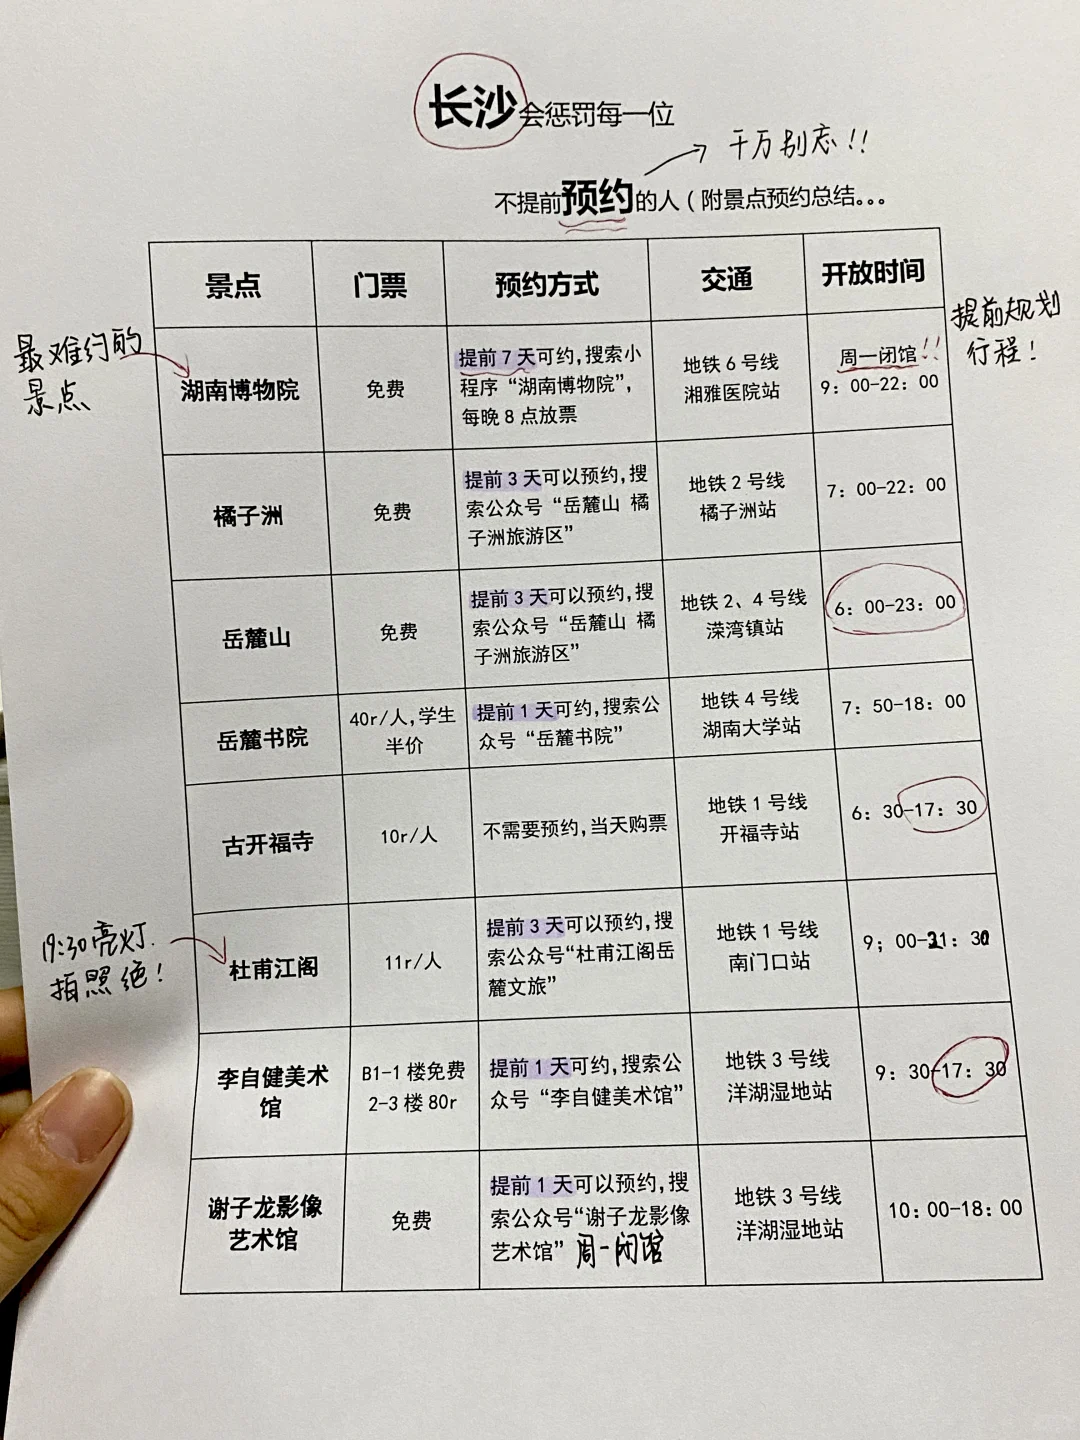 长沙会惩罚每一位
千万别忘!!
不提前预约的人（附景点预约总结。。。
景点 门票 预约方式 交通 开放时间
提前规划
行程!
最难约的
景点
湖南博物院
免费
提前 7 天可约,搜索小
程序“湖南博物院”,
每晚 8 点放票
地铁 6 号线
湘雅医院站
周一闭馆!!
9：00-22：00
橘子洲
免费
提前 3 天可以预约,搜
索公众号“岳麓山 橘
子洲旅游区”
地铁 2 号线
橘子洲站
7：00-22：00
岳麓山
免费
提前 3 天可以预约,搜
索公众号“岳麓山 橘
子洲旅游区”
地铁 2、4 号线
溁湾镇站
6：00-23：00
岳麓书院
40r/人,学生
半价
提前 1 天可约,搜索公
众号“岳麓书院”
地铁 4 号线
湖南大学站
7：50-18：00
古开福寺
10r/人
不需要预约,当天购票
地铁 1 号线
开福寺站
6：30-17：30
19:30亮灯.
拍照绝!
杜甫江阁
11r/人
提前 3 天可以预约,搜
索公众号“杜甫江阁岳
麓文旅”
地铁 1 号线
南门口站
9；00-21：30
李自健美术
馆
B1-1 楼免费
2-3 楼 80r
提前 1 天可约,搜索公
众号“李自健美术馆”
地铁 3 号线
洋湖湿地站
9：30-17：30
谢子龙影像
艺术馆
免费
提前 1 天可以预约,搜
索公众号“谢子龙影像
艺术馆” 周一闭馆
地铁 3 号线
洋湖湿地站
10：00-18：00